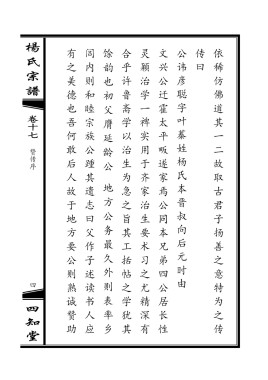 依稀仿佛道其一二故取古君子扬善之意特为之传
传曰
公讳彦聪字叶蓁姓杨氏本晋叔向后元时由
文兴公迁霍太平坂遂家焉公同本兄弟四公居长性
灵颖治学一裨实用于齐家治生要术习之尤精深有
合乎许鲁斋学以治生为急之旨其工括帖之学犹其
馀韵也初父膺延龄公 地方公务最久外则表率乡
闾内则和睦宗族公踵其遗志曰父作子述读书人应
有之美德也吾何敢后人故于地方要公则热诚赞助
楊氏宗譜
卷十七
四
四知堂